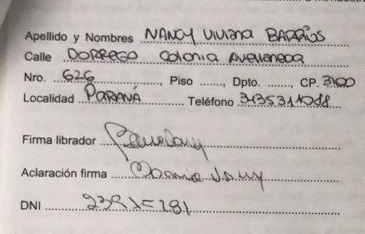 Apellido y Nombres NANCY VIVIANA BARRIOS
Calle DORREGO Colonia Avellaneda
Nro. 626 Piso ...... Dpto. ......, CP. 3100
Localidad PARANÁ Teléfono
Firma librador
Aclaración firma
DNI